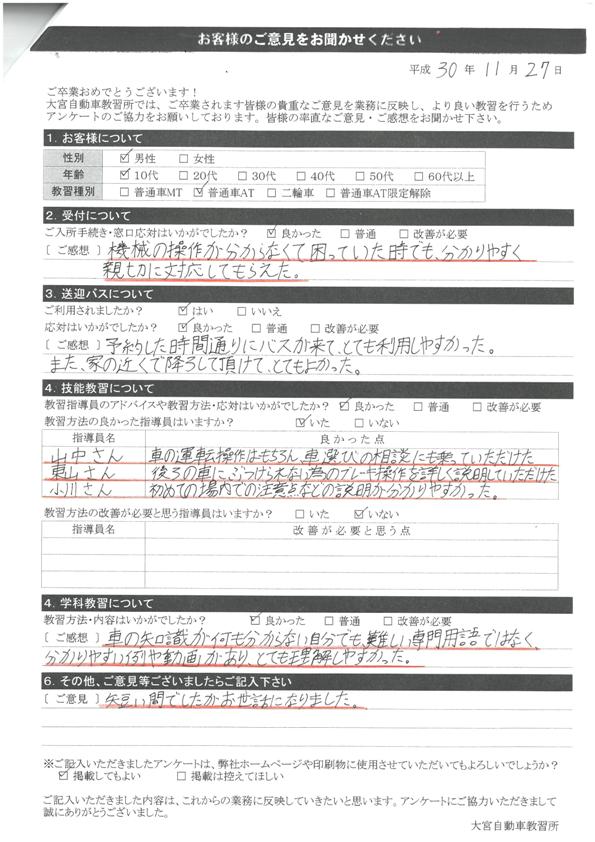 お客様のご意見をお聞かせください
平成 30 年 11 月 27 日
ご卒業おめでとうございます！
大宮自動車教習所では、ご卒業されます皆様の貴重なご意見を業務に反映し、より良い教習を行うため
アンケートのご協力をお願いしております。皆様の率直なご意見・ご感想をお聞かせ下さい。
1. お客様について
性別 ☑ 男性 □ 女性
年齢 ☑ 10代 □ 20代 □ 30代 □ 40代 □ 50代 □ 60代以上
教習種別 □ 普通車MT ☑ 普通車AT □ 二輪車 □ 普通車AT限定解除
2. 受付について
ご入所手続き・窓口応対はいかがでしたか？ ☑ 良かった □ 普通 □ 改善が必要
〔 ご感想 〕 機械の操作が分からなくて困っていた時でも、分かりやすく
親切に対応してもらえた。
3. 送迎バスについて
ご利用されましたか？ ☑ はい □ いいえ
応対はいかがでしたか？ ☑ 良かった □ 普通 □ 改善が必要
〔 ご感想 〕 予約した時間通りにバスが来て、とても利用しやすかった。
また、家の近くで降ろして頂けて、とてもよかった。
4. 技能教習について
教習指導員のアドバイスや教習方法・応対はいかがでしたか？ ☑ 良かった □ 普通 □ 改善が必要
教習方法の良かった指導員はいますか？ ☑ いた □ いない
指導員名 良かった点
山中さん 車の運転操作はもちろん、車選びの相談にも乗っていただけた
東山さん 後ろの車にぶつけられない為のブレーキ操作を詳しく説明していただけた
小川さん 初めての場内での注意点などの説明が分かりやすかった。
教習方法の改善が必要と思う指導員はいますか？ □ いた ☑ いない
指導員名 改善が必要と思う点
4. 学科教習について
教習方法・内容はいかがでしたか？ ☑ 良かった □ 普通 □ 改善が必要
〔 ご感想 〕 車の知識が何も分からない自分でも、難しい専門用語ではなく、
分かりやすい例や動画があり、とても理解しやすかった。
6. その他、ご意見等ございましたらご記入下さい
〔 ご意見 〕 短い間でしたがお世話になりました。
※ご記入いただきましたアンケートは、弊社ホームページや印刷物に使用させていただいてもよろしいでしょうか？
☑ 掲載してもよい □ 掲載は控えてほしい
ご記入いただきました内容は、これからの業務に反映していきたいと思います。アンケートにご協力いただきまして
誠にありがとうございました。
大宮自動車教習所